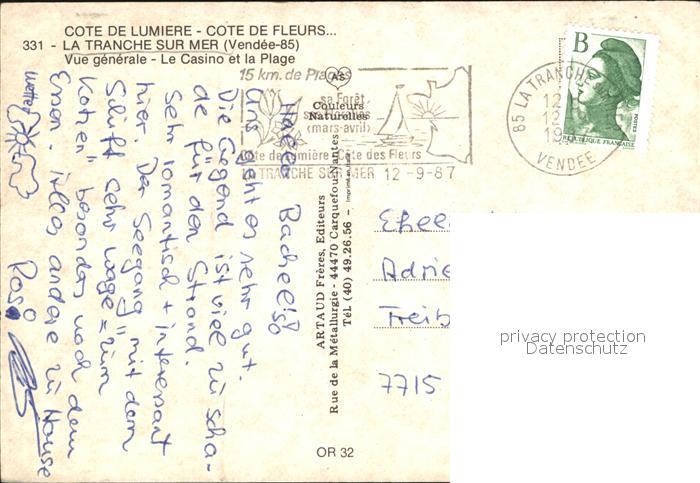 COTE DE LUMIERE - COTE DE FLEURS...
331 - LA TRANCHE SUR MER (Vendée-85)
Vue générale - Le Casino et la Plage
15 km. de Plages
sa Forêt
(mars-avril)
Côte de Lumière Côte des Fleurs
LA TRANCHE SUR MER 12-9-87
AS
Couleurs
Naturelles
B
POSTES
REPUBLIQUE FRANÇAISE
85 LA TRANCHE
12
12
19
VENDEE
Hallo Bachel's!
Uns geht es sehr gut.
Die Gegend ist viel zu scha-
de für den Strand.
Sehr romantisch + interessant
hier. Der Seegang "mit dem
Schiff sehr vage = zum
Kotzen" besonders nach dem
Essen. Alles andere zu Hause
Wetter
Rosa
ARTAUD Frères, Editeurs
Rue de la Métallurgie - 44470 Carquefou-Nantes
Tél. (40) 49.26.56 - Imprimé
OR 32
Adrie
Freib
7715
privacy protection
Datenschutz